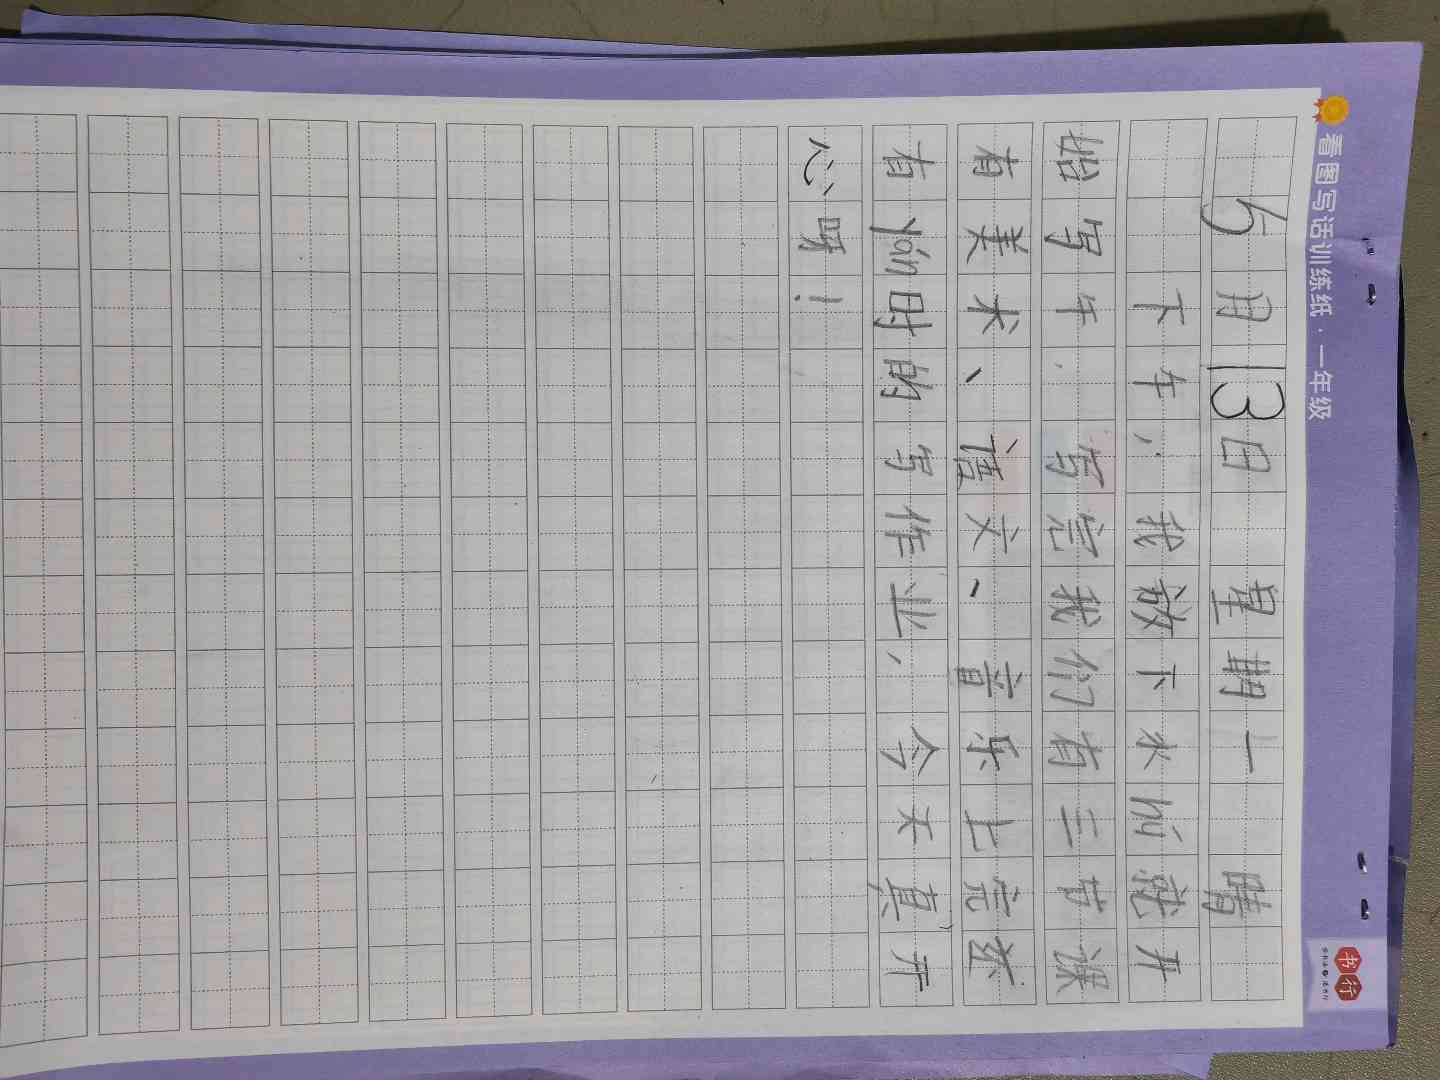 看图写话训练纸·一年级
书行
5月13日 星期一 晴
下午，我放下水就开
始写午.写完我们有三节课
有美术、语文、音乐上完
有时的写作业，今天真开
心呀！